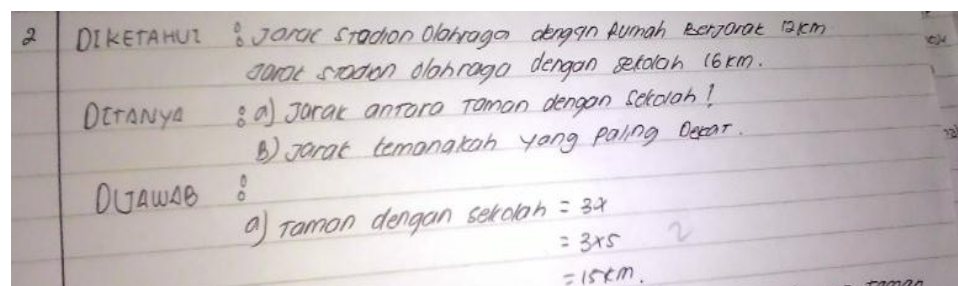 2 DIKETAHUI : Jarak Stadion Olahraga dengan Rumah Berjarak 12 km
Jarak Stadion olahraga dengan sekolah 16 km.
DITANYA : a) Jarak antara Taman dengan Sekolah!
B) Jarak temanakah yang paling Dekat.
DIJAWAB :
a) Taman dengan sekolah = 3x
= 3x5 2
= 15 km.
taman